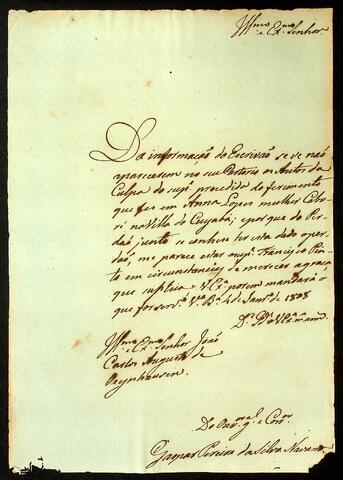 Illmo e Exmo Senhor.
Da informação do Escrivão se ve não
aparecerem no seu Cartorio os Autos da
Culpa do supe procedida do ferimento
que fes em Anna Lopes mulher Cabo-
ri na Villa do Cuyabá; e por que do Per-
dão junto se conhece ter esta dado o per-
dão me parece estar o supe Francisco Pin-
to em circunstancias de merecer a graça
que suplica V. Exa porem mandará o
que for servo Va Ba 4 de Janro de 1808
De V. Exa
Illmo e Exmo Senhor João
Carlos Augusto de
Oeynhausen.
Do Ouvor gal e Coror
Gaspar Pereira da Silva Navarro